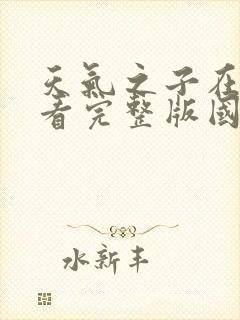 天氣之子在
看完整版國
水新丰